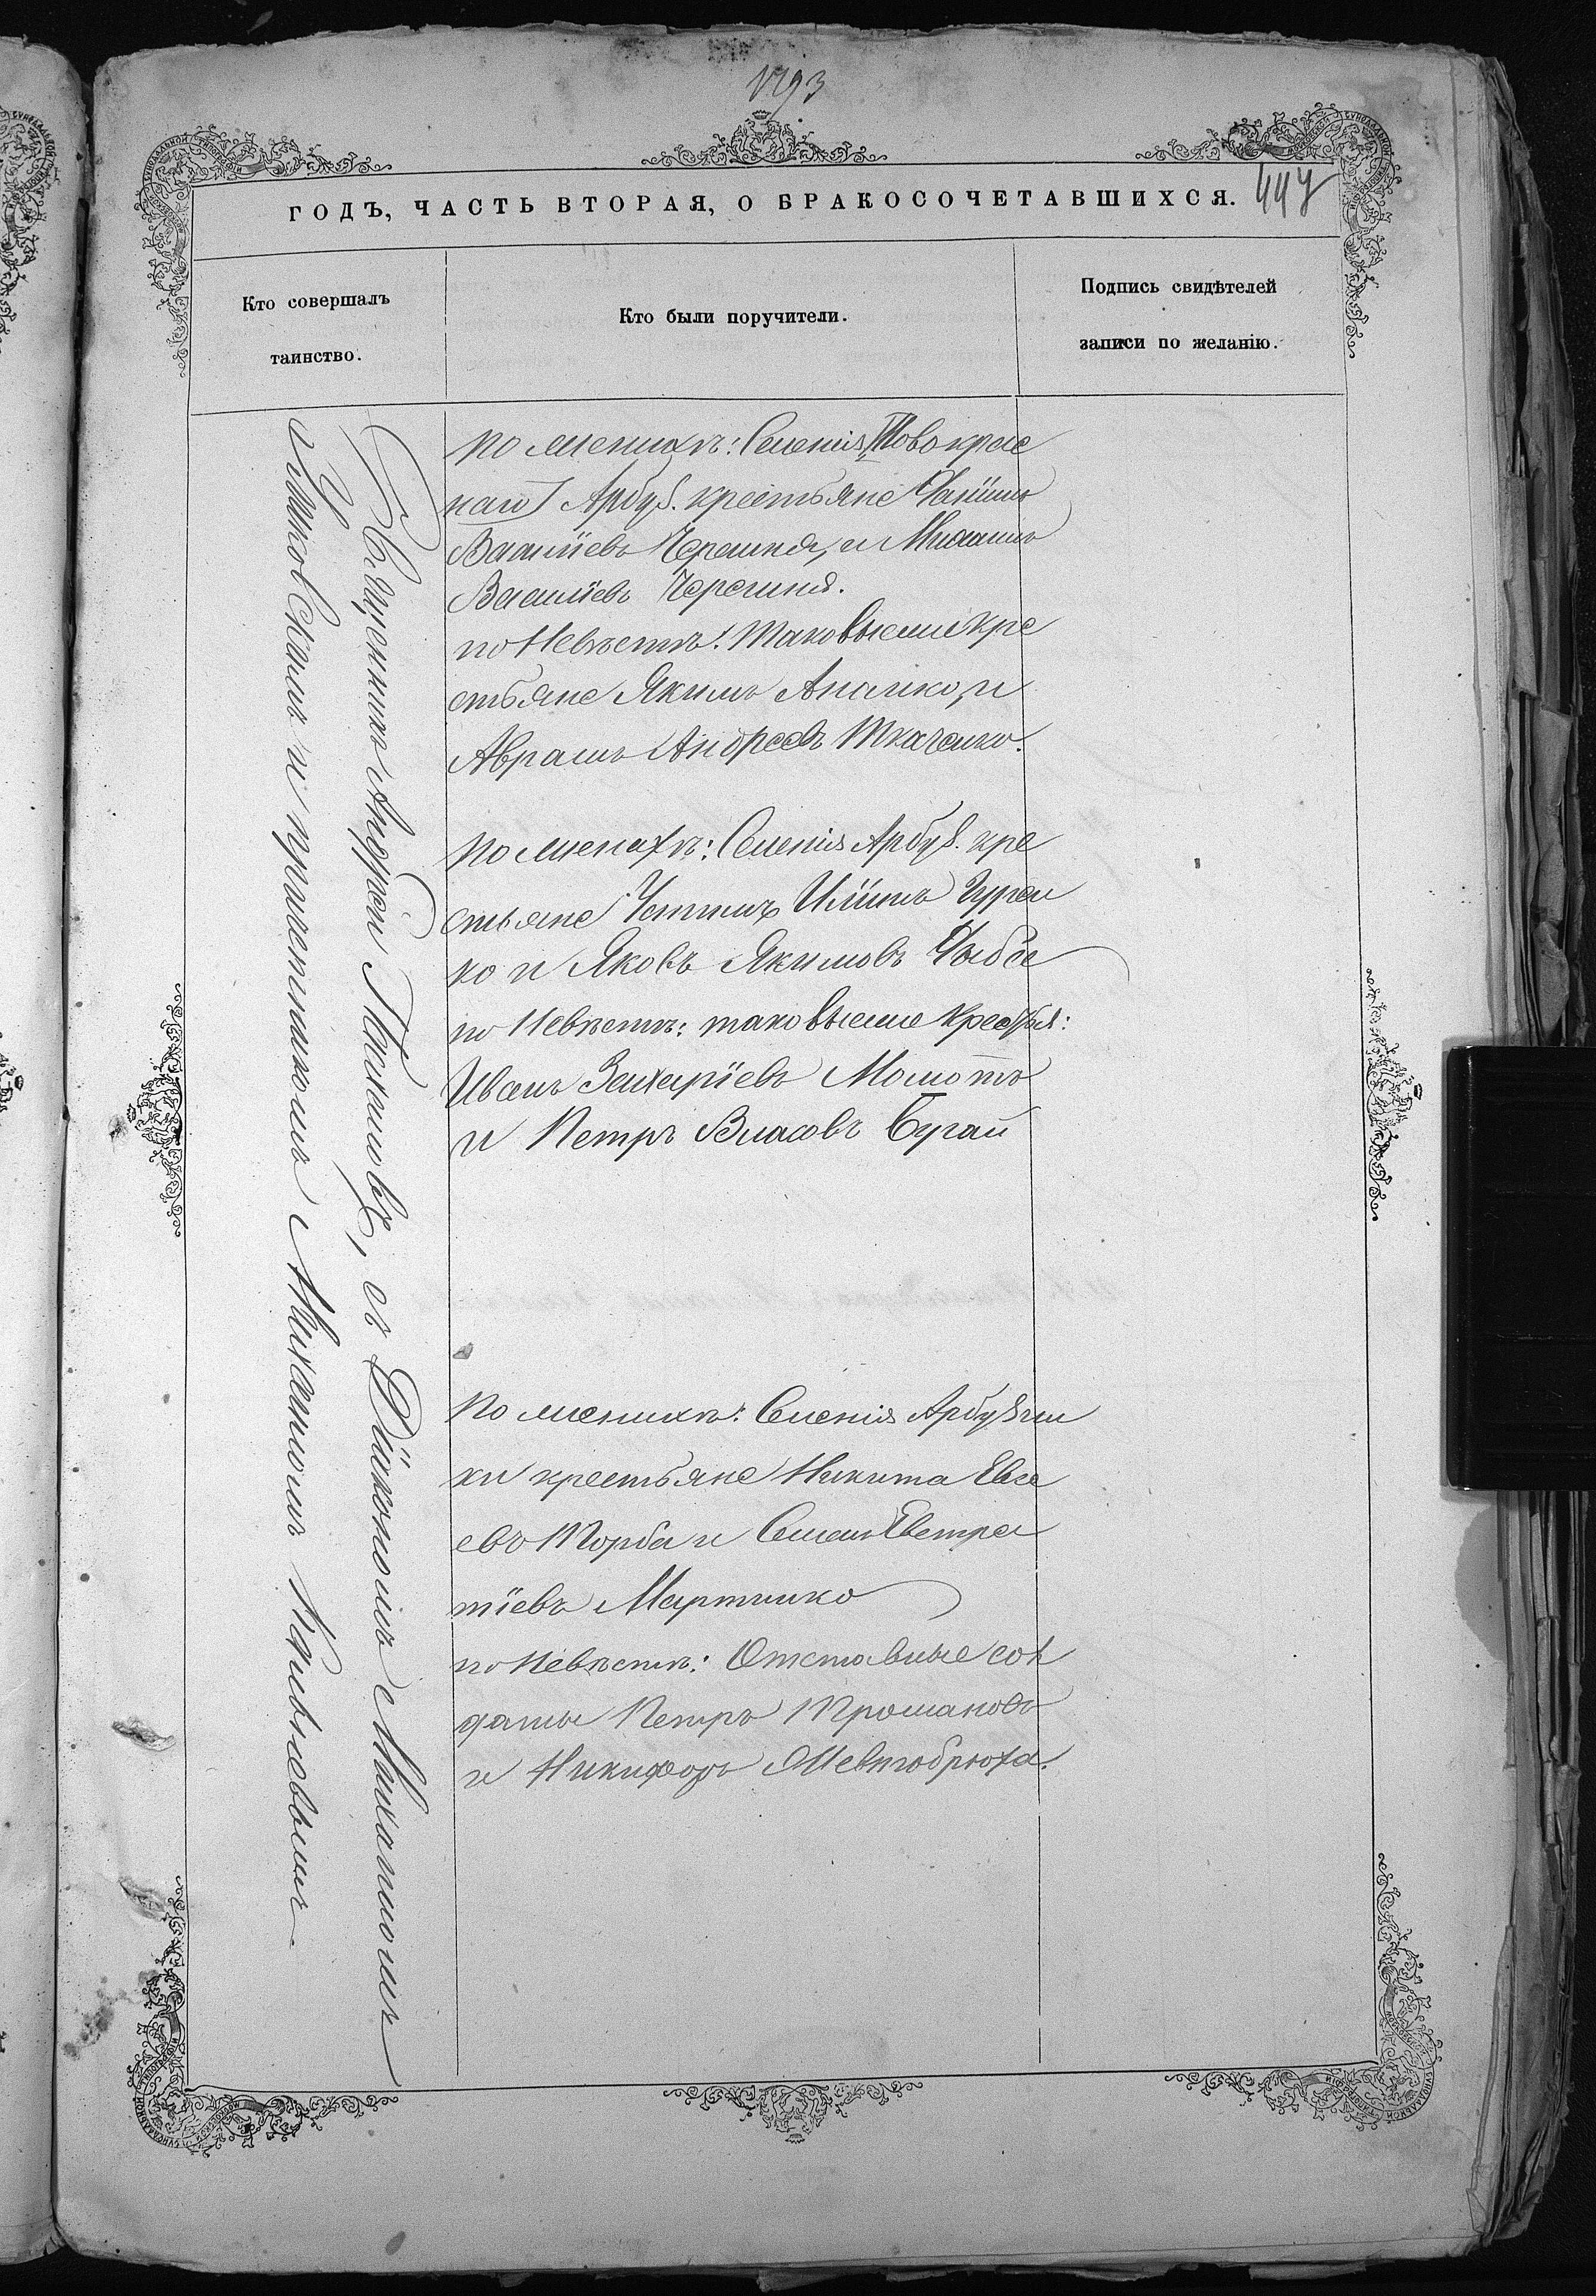 1793
447
ГОДЪ, ЧАСТЬ ВТОРАЯ, О БРАКОСОЧЕТАВШИХСЯ.
Кто совершалъ
таинство.
Кто были поручители.
Подпись свидѣтелей
записи по желанію.
Священникъ Андрей, съ Діакономъ Михаиломъ
и причетникомъ Михаиломъ
по женихѣ: Селенія Новокрас
наго Арбуз. крестьяне
Василіевъ и
Василіевъ
по Невѣстѣ: таковыеже кре
стьяне Якимъ и
Аврамъ Андреевъ Ткаченко.
по женихѣ: Селенія Арбуз. кре
стьяне Устинъ Иліинъ Гурен
ко и Яковъ Якимовъ
по Невѣстѣ: таковыеже крестья:
Иванъ Захаріевъ Момотъ
и Петръ Власовъ Бугай
по женихѣ: Селенія Арбузин
ки крестьяне Никита Евсе
евъ Торба и Семенъ Евстра
тіевъ
по Невѣстѣ: Отставные сол
даты Петръ
и Никифоръ Жевтобрюха.